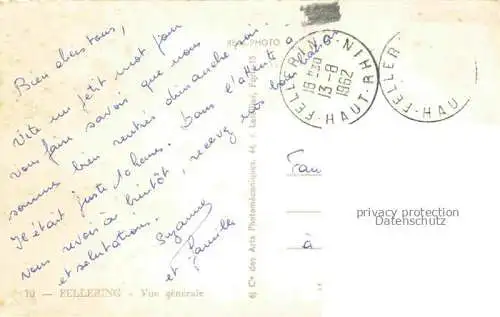 Bien chers tous,
Vite un petit mot pour
vous faire savoir que nous
somme bien rentrés dimanche soir
Il était juste 10 heures. Dans l'attente de
vous revoir à bientôt, recevez nos bons baisers
et salutations.
Suzanne
et famille
10 — FELLERING - Vue générale
REAL PHOTO
Cie des Arts Photomécaniques, 44, r. Letellier, Paris-15
FELLERING-NIHR
18 H 30
13-8
1962
HAUT-R
FELLER
HAU
Fam
à
privacy protection
Datenschutz